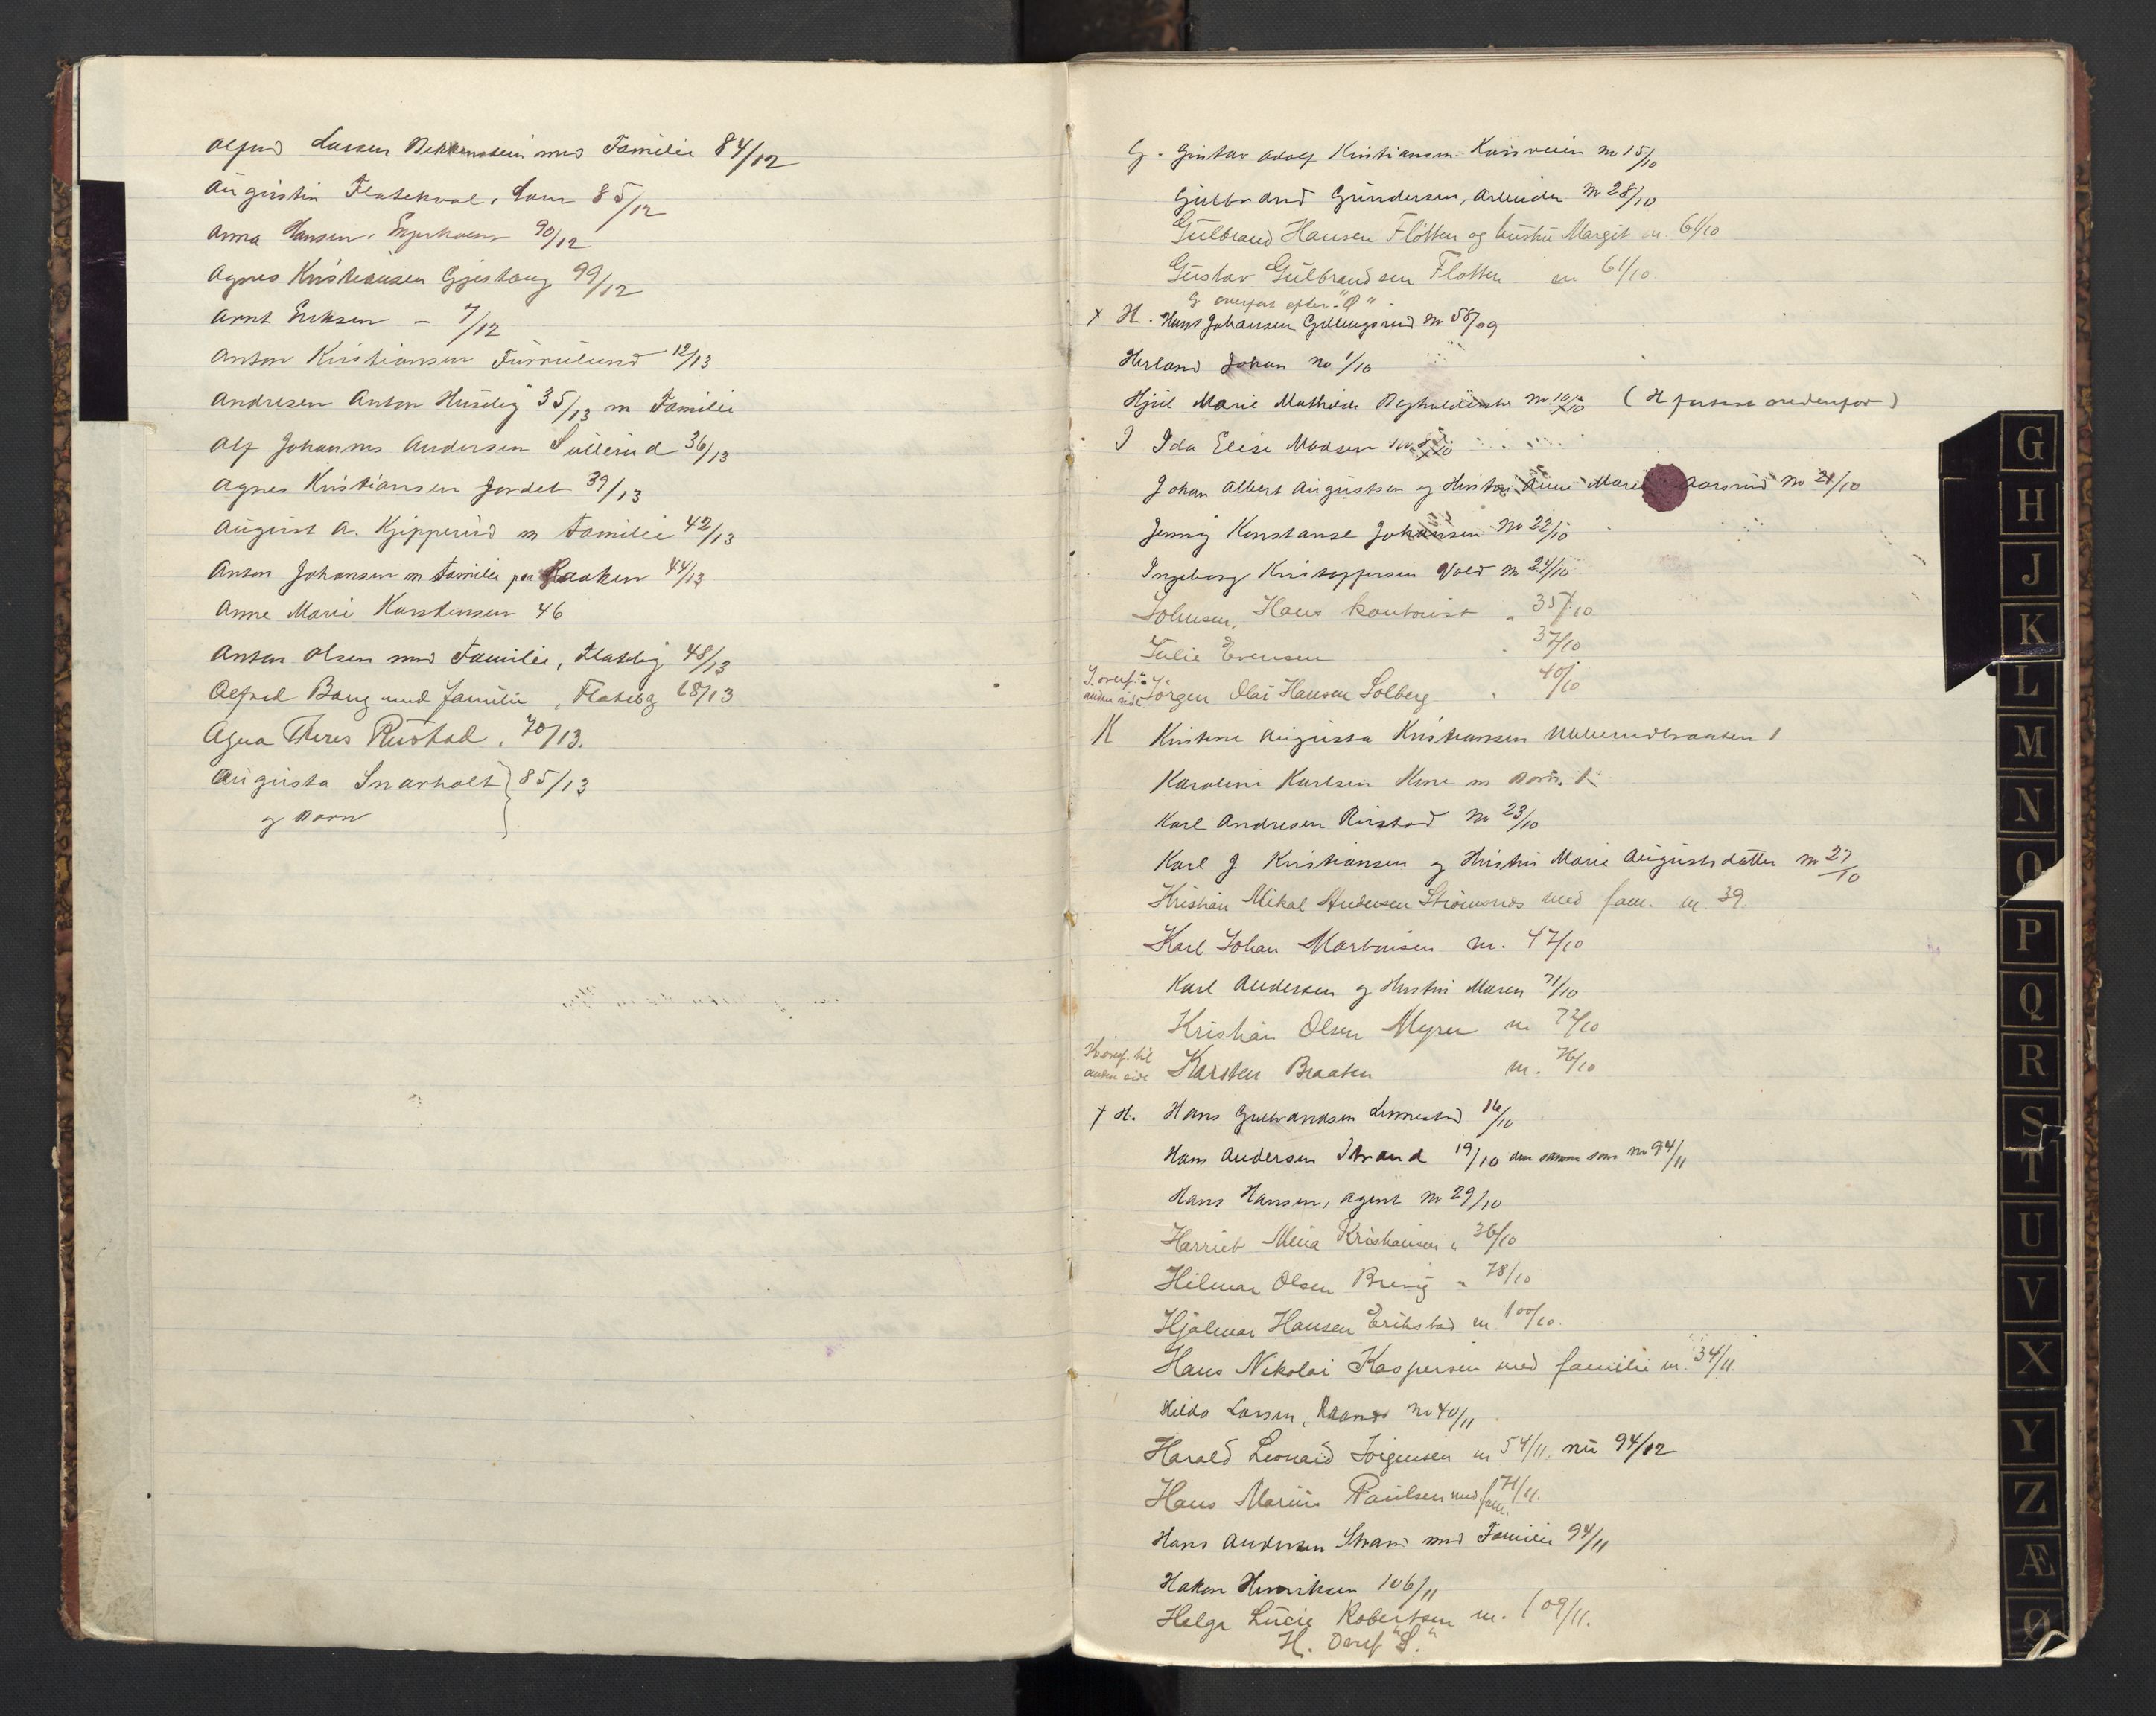 Alfred Larsen Bekkenstein med Familie 84/12
Augustin Flateval, Lam 85/12
Anna Hansen, 90/12
Agnes Kristiansen Gjestang 99/12
Arnt Eriksen - 7/12
Anton Kristiansen Furrulund 12/13
Andresen Anton Huseby 35/13 m Familie
Alf Johannes Andersen Sullerud 36/13
Agnes Kristiansen Jordet 39/13
August A. Kjipperud m Familie 42/13
Anton Johansen m Familie paa Braaten 44/13
Anne Marie Karstensen 46
Anton Olsen med Familie, Flateby 48/13
Alfred Bang med familie, Flateby 68/13
Agna Theres Rustad, 70/13.
Augusta Snarholt } 85/13
og Barn
G. Gustav Adolf Kristiansen Korsveien No 15/10
Gulbrand Gundersen, Arbeider No 28/10
Gulbrand Hansen Flötten og hustru Margit nr. 61/10
Gustav Gulbrandsen Flotten nr 61/10.
G overført efter "Ø"
x H. Hans Johansen Gillingsrud No 58/09
Herland Johan No 1/10
Hjul Marie Mathilde No 10/10 (H fortsat nedenfor)
I Ida Elise Madsen
Johan Albert Augustsen og Hustru Anne Marie Aarsrud No 21/10
Jenny Konstanse Johansen No 22/10
Ingeborg Kristoffersen Vold No 24/10
Johnsen, Hans kontorist " 35/10
Julie Evensen " 37/10
J. overf. anden side Jörgen Olai Hansen Solberg " 40/10
K Kristine Augusta Kristiansen Ullerudbraaten 1
Karoline Karlsen m Barn. 1
Karl Andresen Rustad No 23/10
Karl J Kristiansen og Hustru Marie Augustsdatter No 27/10
Kristian Mikal Andersen Strömsnes med fam. nr. 39.
Karl Johan Martinsen nr. 47/10
Karl Andersen og Hustru Maren 71/10
Kristian Olsen Myrer nr 72/10
K overf. til anden side Karsten Braaten nr. 76/10
x H. Hans Gulbrandsen Linnestad 16/10
Hans Andersen Strand 19/10 den samme som No 94/11
Hans Hansen, agent No 29/10
Harriet Mina Kristiansen " 36/10
Hilmar Olsen Brevig " 78/10
Hjalmar Hansen Erikstad nr. 100/10.
Hans Nikolai Kaspersen med familie nr. 34/11.
Hilda Larsen, No 40/11
Harald Leonard Jörgensen nr 54/11. nu 94/12
Hans Marius Paulsen med fam. 71/11.
Hans Andersen Strand med Familie 94/11
Hakon Henriksen 106/11
Helga Lucie Robertsen nr. 109/11.
H. Overf "S."
G
H
J
K
L
M
N
O
P
Q
R
S
T
U
V
X
Y
Z
Æ
Ø